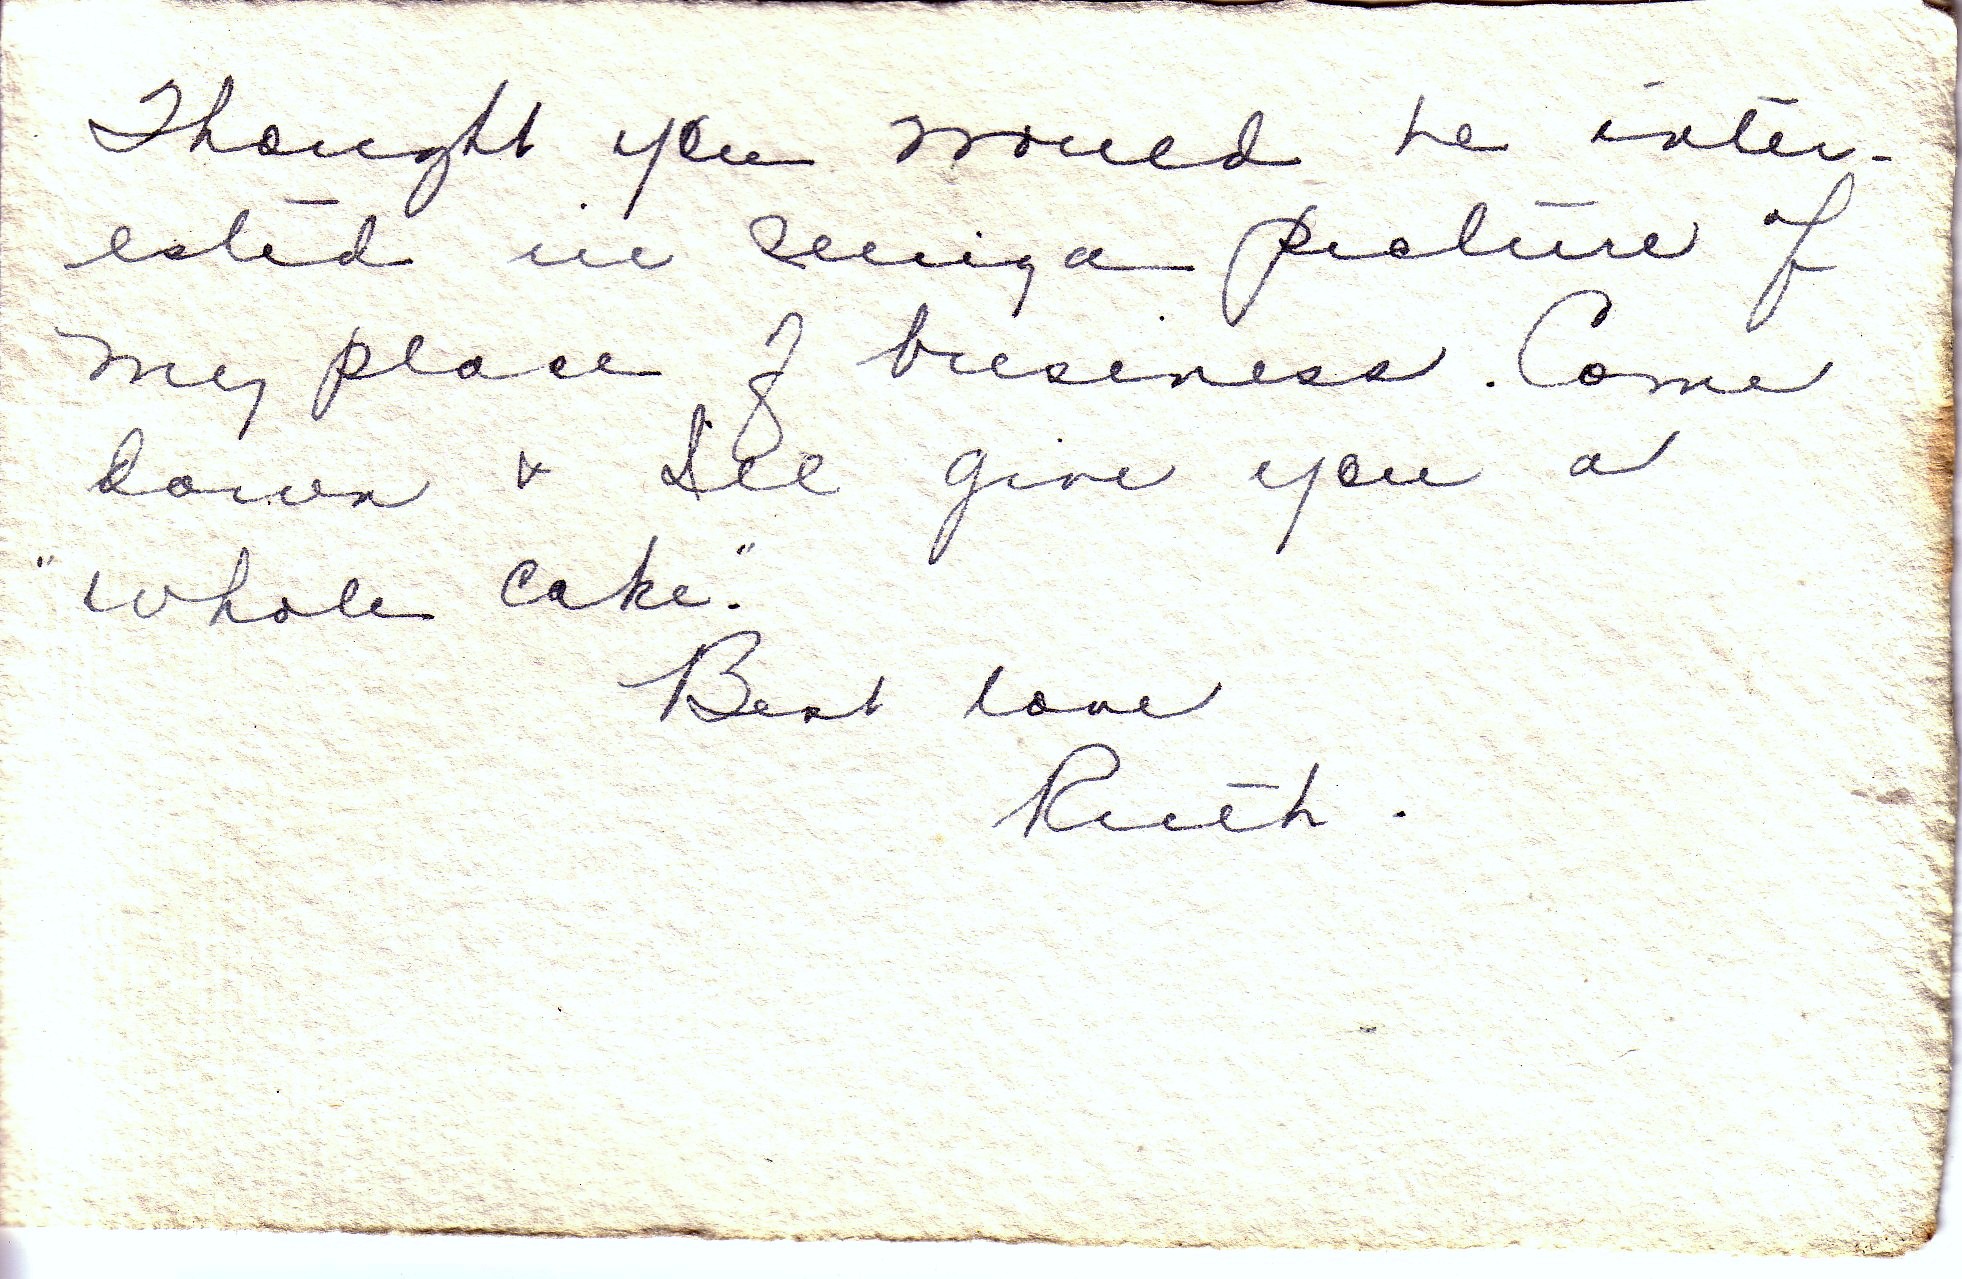 Thought you would be inter-
ested in seeing a picture of
my place of business. Come
down & I'll give you a
"whole cake."
Best love
Ruth.